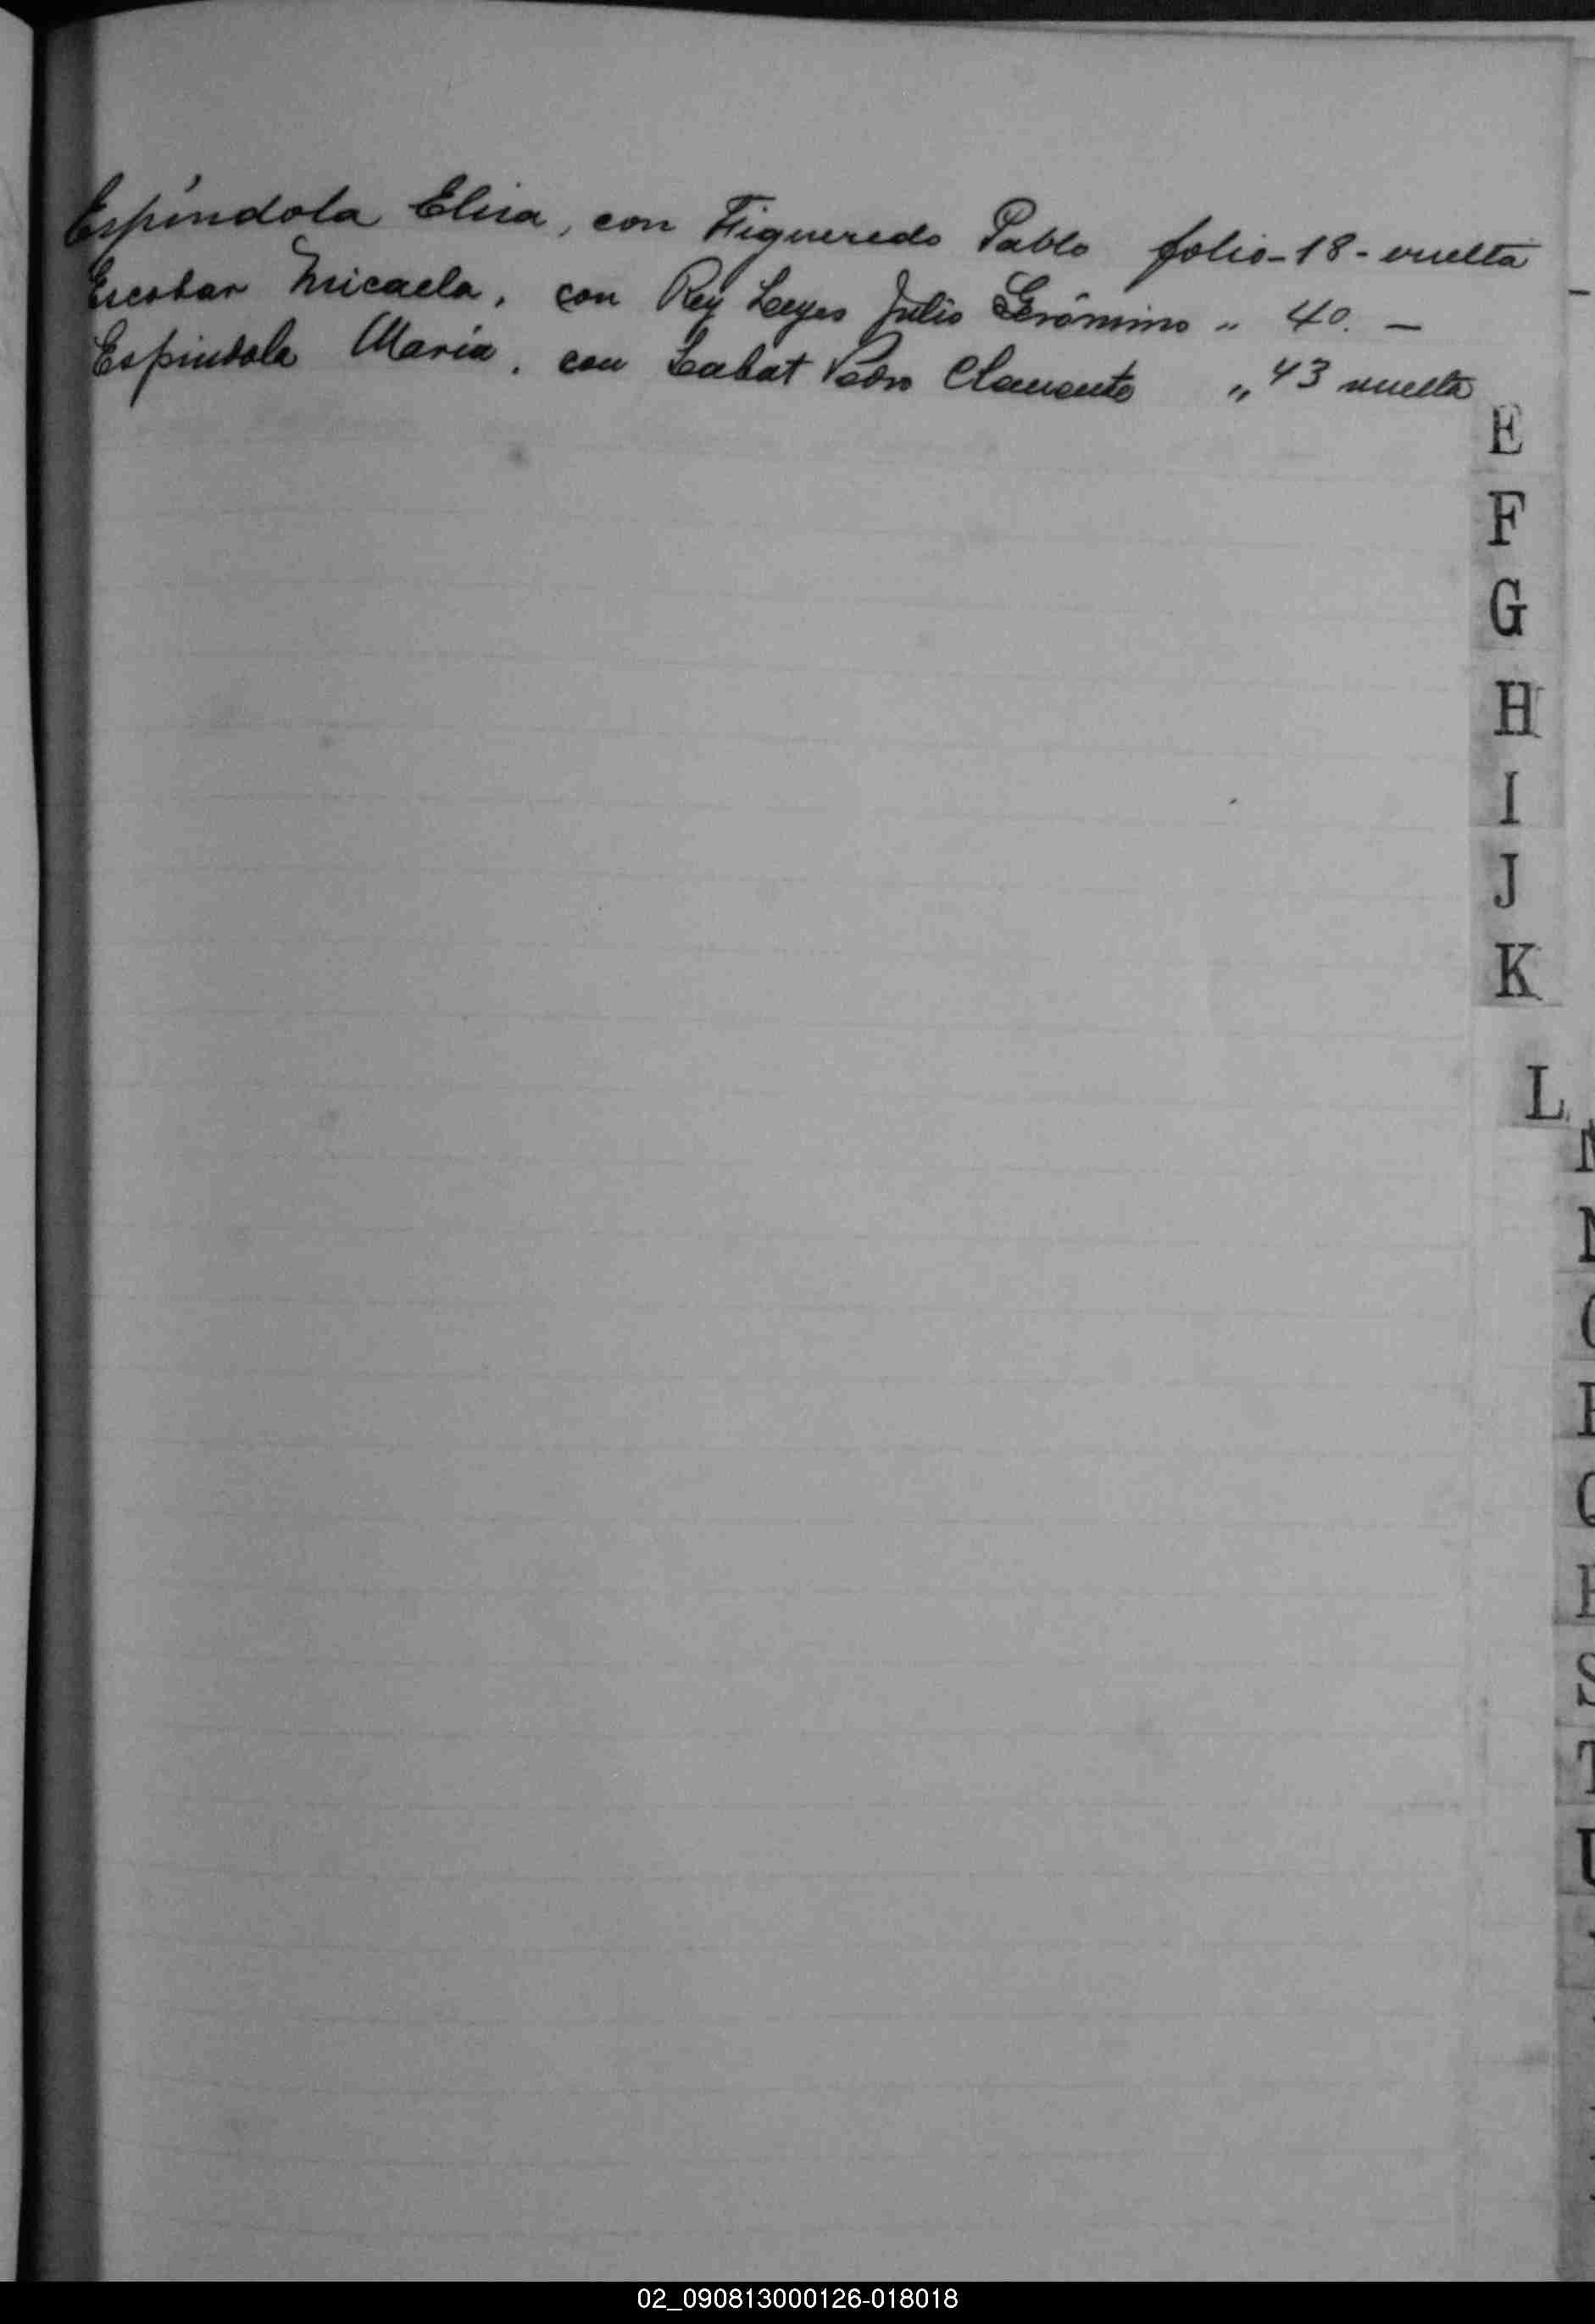 Espíndola Elisa, con Figueredo Pablo folio-18-vuelta
Escobar Micaela, con Rey Leyes Julio Gerónimo " 40. —
Espindola María, con Labat Pedro Clemente " 43 vuelta
E
F
G
H
I
J
K
L
S
T
U
02_090813000126-018018